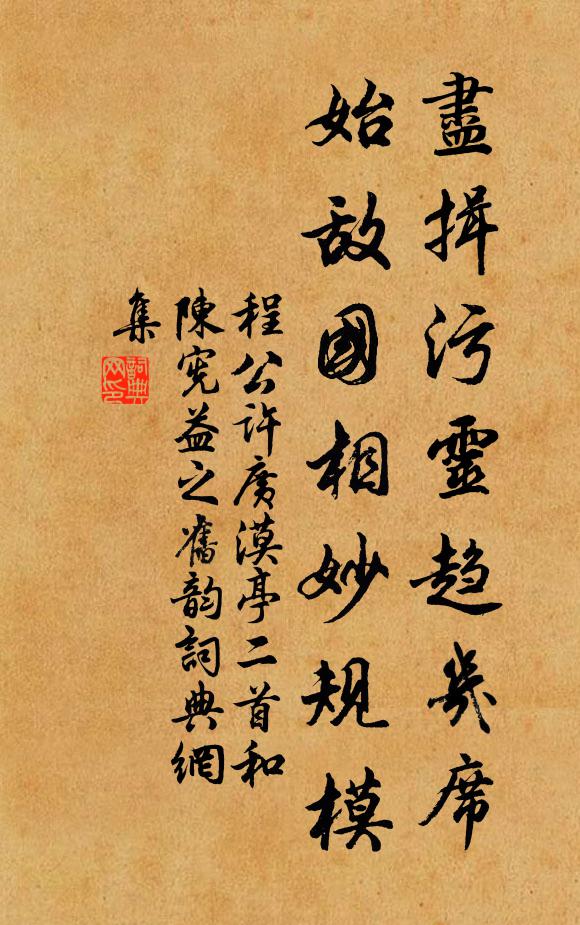 盡揖污靈趨幾席
始敌國相妙規模
程公許廣漠亭二首和
陳宪益之舊韵詞典網
集
詞典
网印